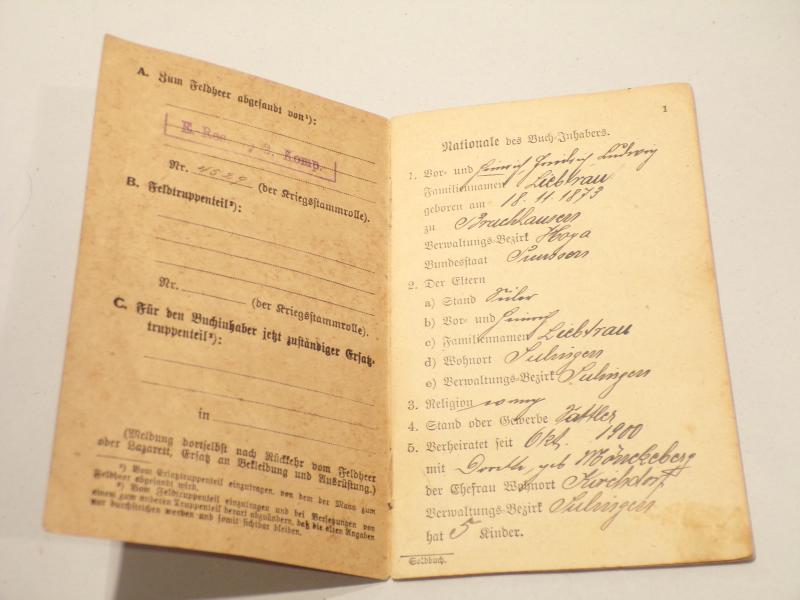 A. Zum Feldheer abgesandt von¹):
E. Res 3. Komp.
Nr. 4529 (der Kriegsstammrolle).
B. Feldtruppenteil²):
Nr. (der Kriegsstammrolle).
C. Für den Buchinhaber jetzt zuständiger Ersatz-
truppenteil²):
in
(Meldung dortselbst nach Rückkehr vom Feldheer
oder Lazarett, Ersatz an Bekleidung und Ausrüstung.)
¹) Vom Ersatztruppenteil einzutragen, von dem der Mann zum
Feldheer abgesandt wird.
²) Vom Feldtruppenteil einzutragen und bei Versetzungen von
einem zum anderen Truppenteil derart abzuändern, daß die alten Angaben
nur durchstrichen werden und somit sichtbar bleiben.
1
Nationale des Buch-Inhabers.
1. Vor- und Heinrich Friedrich Ludwig
Familiennamen Liebtrau
geboren am 18.11.1873
zu Bruchhausen
Verwaltungs-Bezirk Hoya
Bundesstaat Preussen
2. Der Eltern
a) Stand
b) Vor- und Heinrich
c) Familiennamen Liebtrau
d) Wohnort Sulingen
e) Verwaltungs-Bezirk Sulingen
3. Religion evang
4. Stand oder Gewerbe Sattler
5. Verheiratet seit Okt. 1900
mit Dorette geb Mönckeberg
der Ehefrau Wohnort Kirchdorf
Verwaltungs-Bezirk Sulingen
hat 5 Kinder.
Soldbuch.